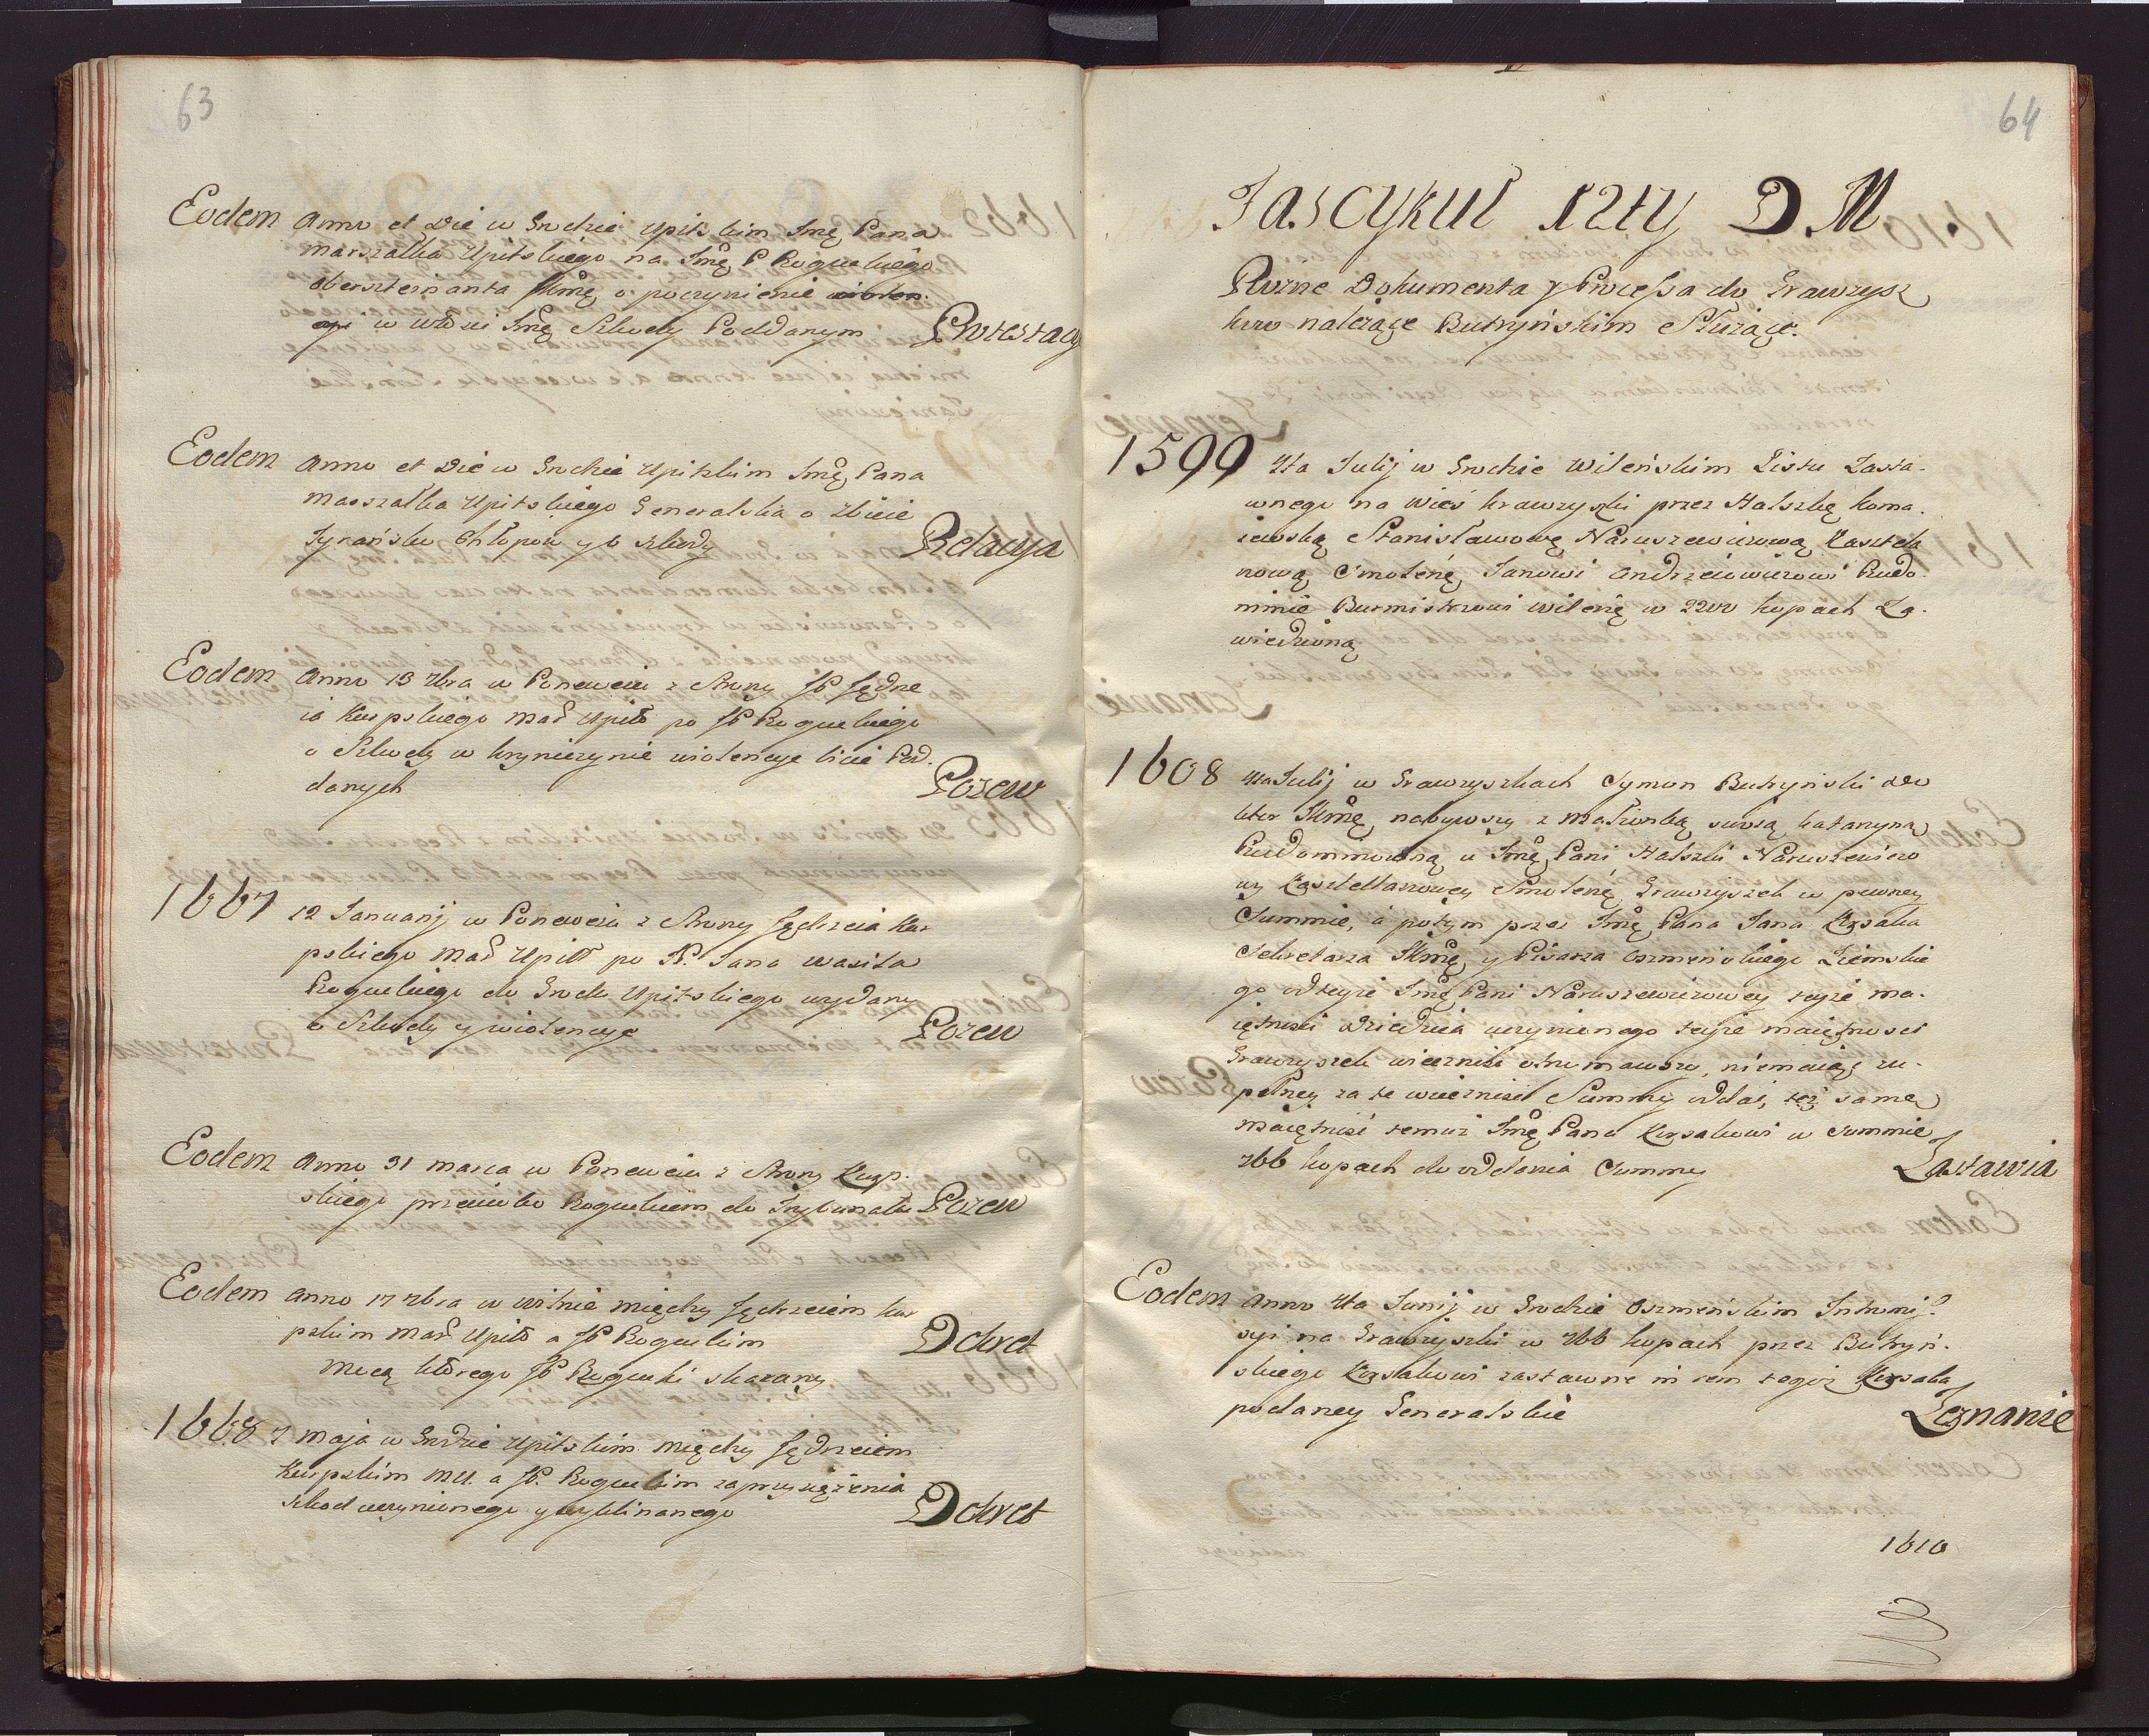 63
Eodem Anno et Die w Grodzie Upitskim Jmę Pana
Marszałka Upitskiego na Jmę P Roguskiego
oberszternanta Jkmę o poczynienie wioten.
cyi w włoui Jmę Szkody Poddanym Protestacy
Eodem Anno et Die w Grodzie Upitskim Jmę Pana
Marszałka Upitskiego Generalska o zbicie
Tyrańskie Chłopow y o szkody Relacya
Eodem Anno 13 xbra w Poneweżu z Strony JP Jędrze
ia Karpskiego Mar Upitt po JP Roguskiego
o Szkody w Kryniczynie wiolencye bicie Pod.
danych Pozew
1667 12 Januarij w Poneweżu z Strony Jędrzeia Kar
pskiego Mar Upitt po P. Jana
Roguskiego do Grodu Upitskiego wydany
o Szkody y wiolencye Pozew
Eodem Anno 31 Marca w Poneweżu z Strony Karp.
skiego przeciwko Roguskiem do Trybunału Pozew
Eodem Anno 17 xbra w Wilnie między Jędrzeiem Kar
pskim Mar Upitt a JP Roguskim Dekret
Mocą którego JP Roguski skazany
1668 7 Maja w Grodzie Upitskim między Jędrzeiem
Karpskim MU. a JP. Roguskim zaprzysiężenia
szkod uczynionego y Dekret
64
Fascykuł 12ty D. M
Rózne Dokumenta y Processa do Grawzysz
kow należące Butryńskim Służące.
1599 4ta Julij w Grodzie Wileńskim Listu Zasta-
wnego na Wieś Krawzyszki przez Halszkę Koma.
iewską Stanisławową Naruszewiczową Kasztela
nową Smoleńę Janowi Andrzeiowiczowi Rudo.
minie Burmistrzowi Wilenę w 2200 kopach Za.
wiedzioną
1608 4ta Julij w Grawzyszkach Symon Butryński Do
ktor Jkmę nabywszy z Małżonką swoią Katarzyną
Rudominowną u Jmę Pani Halszki Naruszewiczo
wy Kasztellanowey Smolenę Grawzyszek w pewney
Summie, a potym przez Jmę Pana Jana Korsaka
Sekretarza Jkmę y Pisarza Oszmińskiego Ziemskie
go od teyże Jmę Pani Naruszewiczowey teyże ma.
iętnosci Dziedzica uczynionego teyże maiętnosci
Grawzyszek wiecznisć otrzymawszy, niemaiąc zu.
pełney za te wiecznisć Summy oddać, też samę
maiętnisć temuż Jmę Panu Korsakowi w Summie
766 kopach do oddania Summy Zastawia
Eodem Anno 4ta Junij w Grodzie Oszmeńskim Intromi.
syi na Grawzyszki w 766 kopach przez Butryń.
skiego Korsakowi zastawne in rem tegoż Korsaka
podaney Generalskie Zeznanie
1610